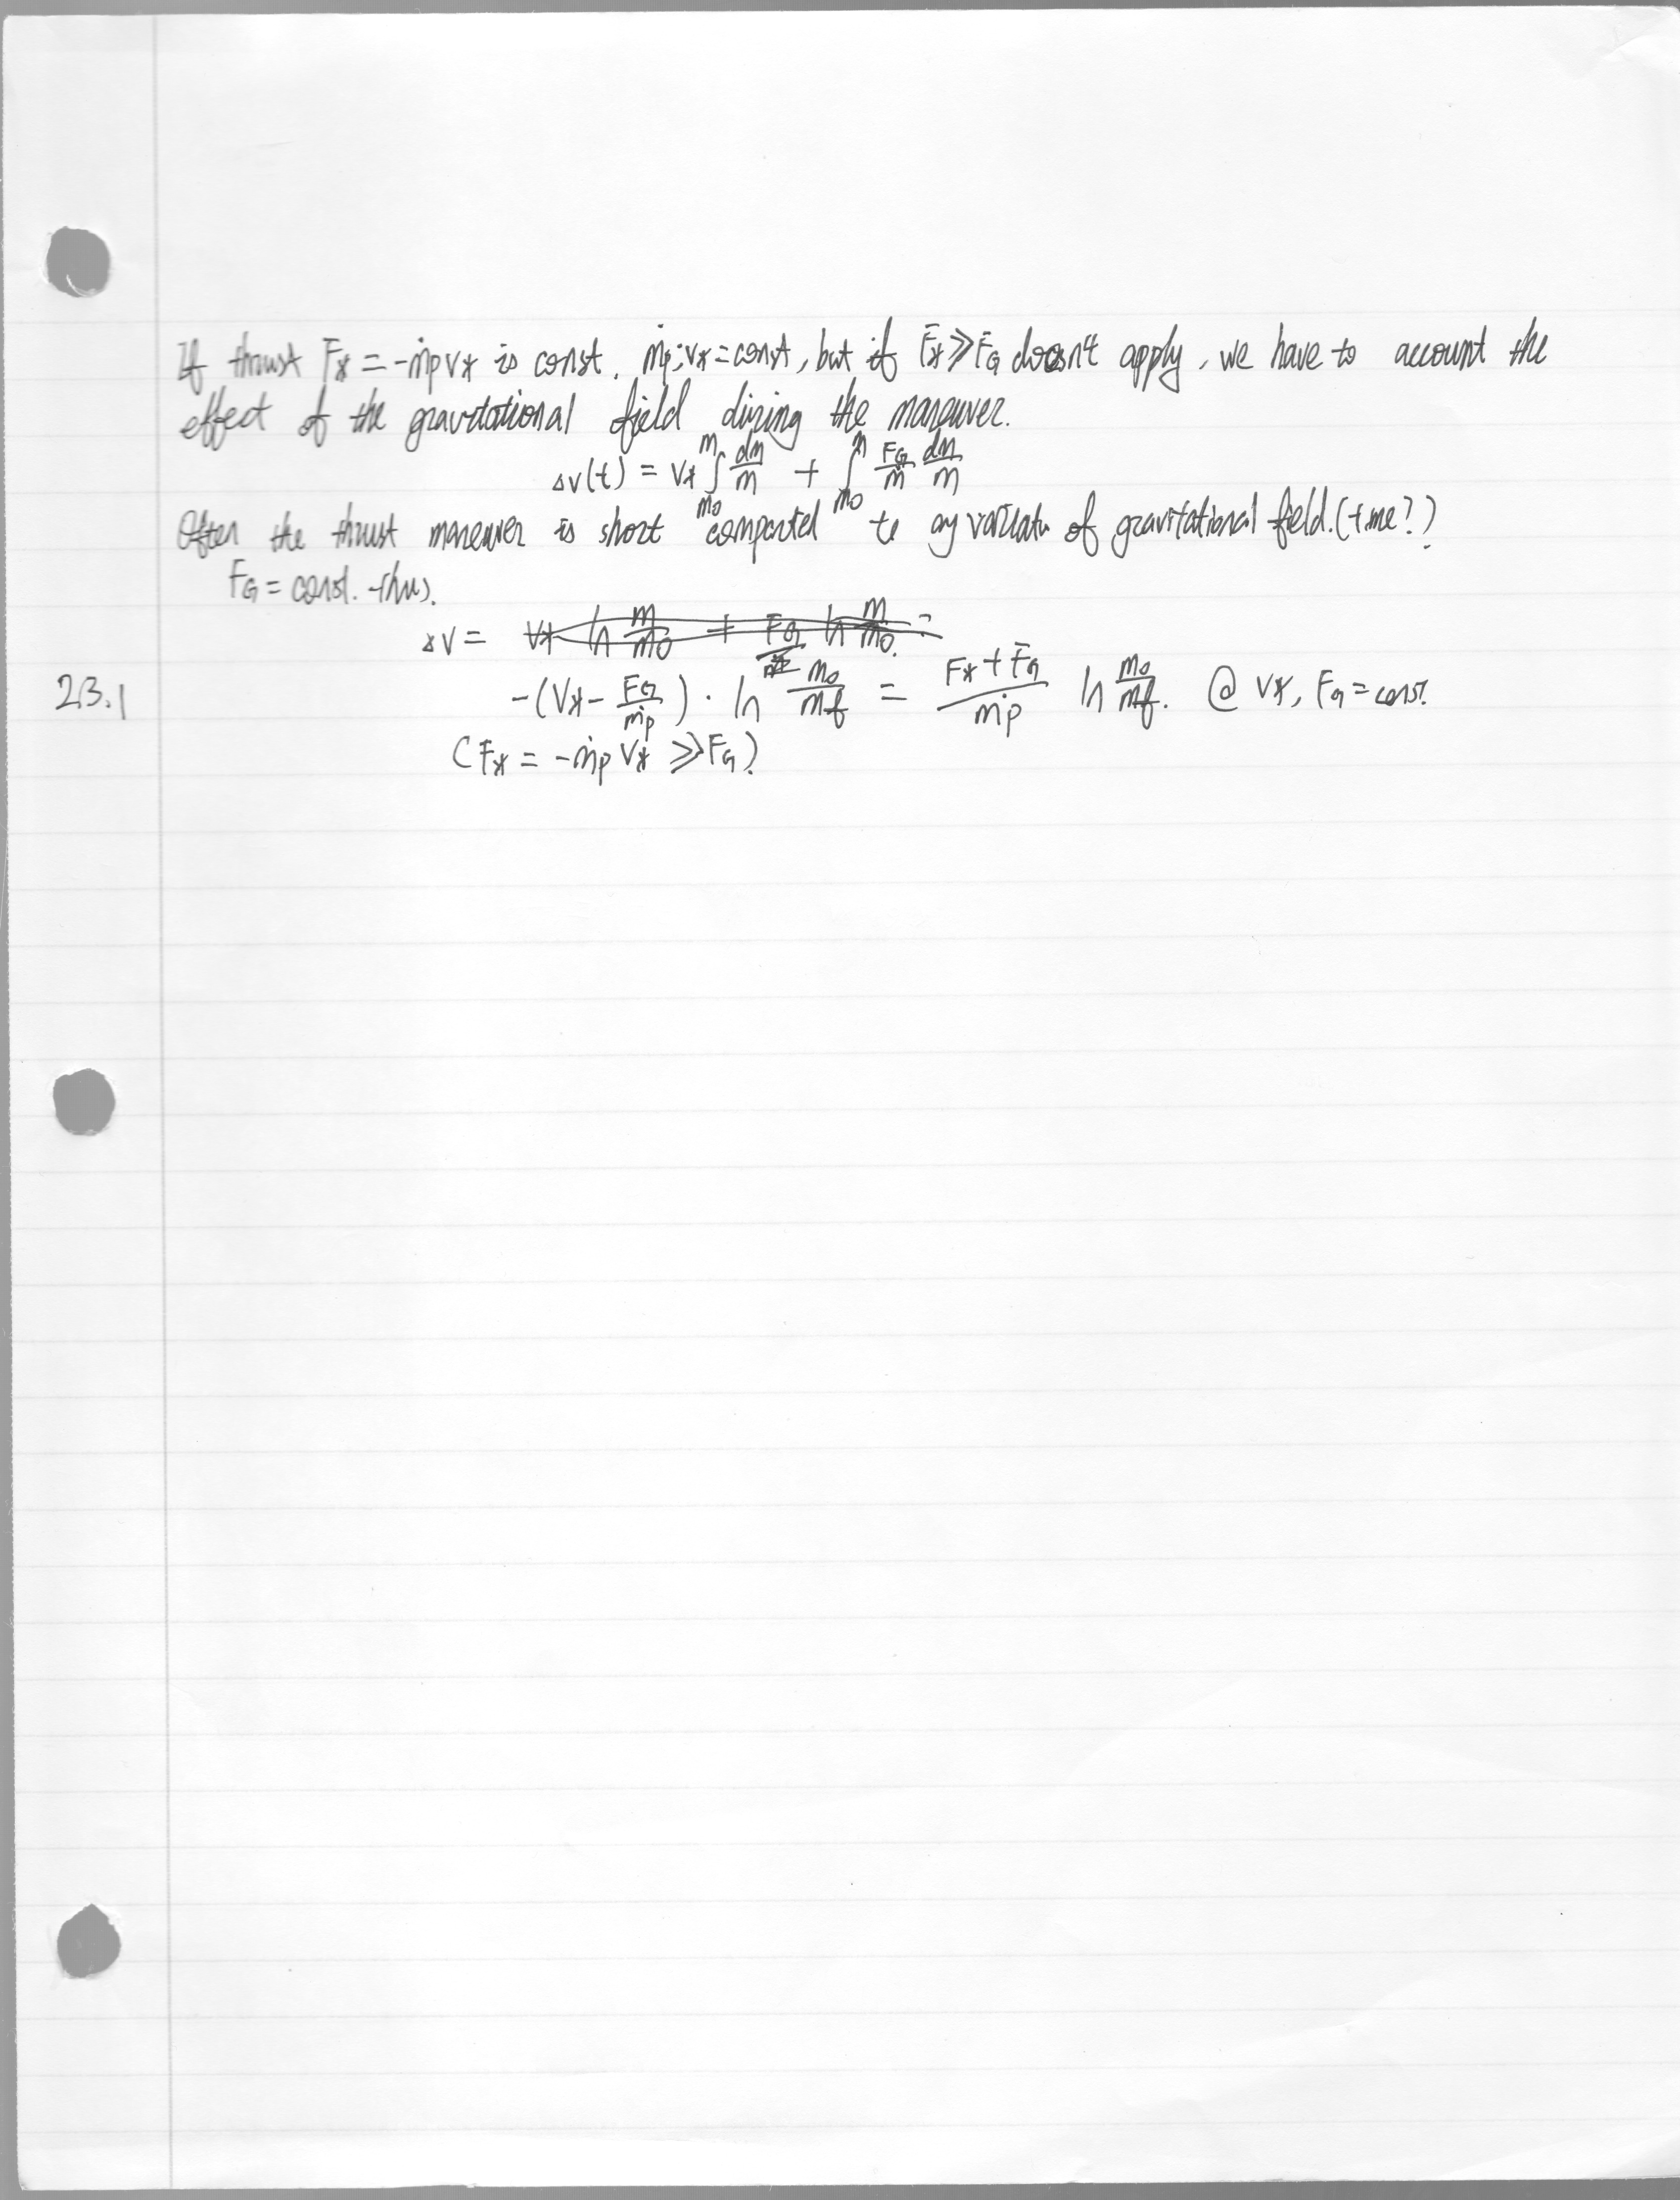 If thrust F* = -ṁp v* is const. ṁp; v* = const, but if F* ≫ FG doesn't apply, we have to account the
effect of the gravitational field during the maneuver.
Δv(t) = v* ∫_{m0}^{m} dm/m + ∫_{m0}^{m} FG/ṁ dm/m
Often the thrust maneuver is short compared to any variatn of gravitational field. (time?)
FG = const. thus.
Δv = v* ln m/m0 + FG/ṁ ln m/m0 =
2.3.1 -(v* - FG/ṁp) · ln m0/mf = (F* + FG)/ṁp ln m0/mf. @ v*, FG = const.
(F* = -ṁp v* ≫ FG)